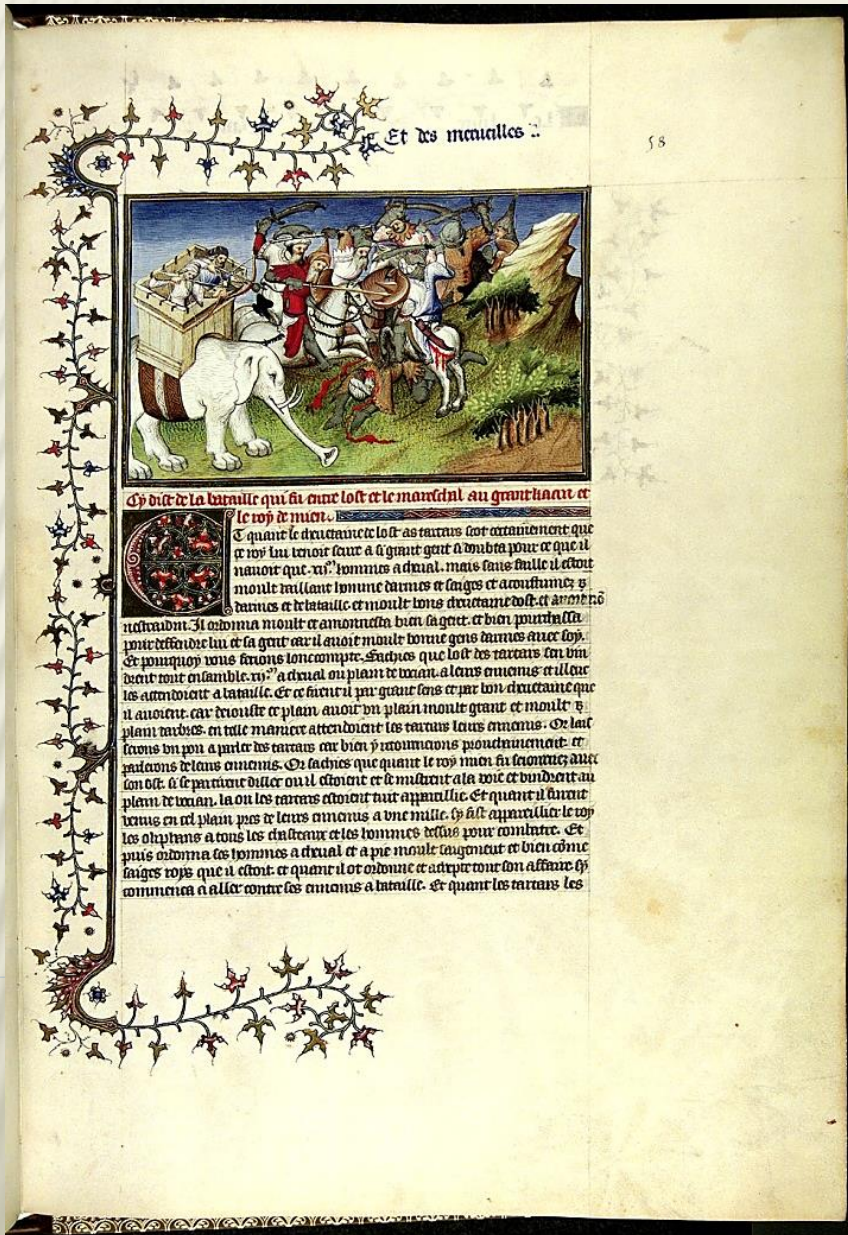 Et des merueilles
58
Cy dist de la bataille qui fu entre lost et le mareschal au grant kaan et
le roy de mien.
Et quant le cheuetaine de lost as tartars scot certainement que
ce roy lui venoit seure a si grant gent si doubta pour ce que il
nauoit que .xij.m hommes a cheual. mais sans faille il estoit
moult vaillant homme darmes et saiges et acoustumez
darmes et de bataille. et moult bons cheuetaine dost. et auoit nõ
nestraidin. Il ordonna moult et amonnesta bien sa gent. et bien pourchassa
pour deffendre lui et sa gent car il auoit moult bonne gens darmes auec soy.
Et pourquoy vous feroies lonc compte. Sachies que lost des tartars sen vin
drent tout ensamble .xij.m a cheual ou plain de vocian. a leurs ennemis et illeuc
les attendoient a bataille. Et ce firent il par grant sens et par bon cheuetaine que
il auoient. car deiouste ce plain auoit vn plain moult grant et moult
plain darbres. en telle maniere attendoient les tartars leurs ennemis. Or lait
serons vn pou a parler des tartars car bien y retournerons prouchainement et
parlerons de leurs ennemis. Or sachies que quant le roy mien fu seiournez auec
son ost. si se partirent dillec ou il estoient et se mistrent a la voie et vindrent au
plain de vocian. la ou les tartars estoient tuit appareillie. Et quant il furent
venus en cel plain pres de leurs ennemis a vne mille. sy fist appareillier le roy
les oliphans a tous les chasteaux et les hommes dessus pour combatre. Et
puis ordonna ses hommes a cheual et a pie moult saigement et bien cõme
saiges roys que il estoit. et quant il ot ordonne et tout son affaire. sy
commenca a aller contre ses ennemis a bataille. Et quant les tartars les